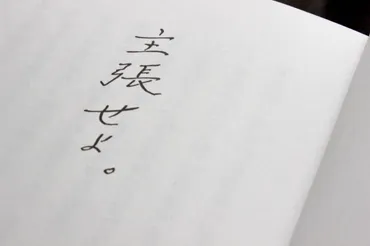 主張せよ。